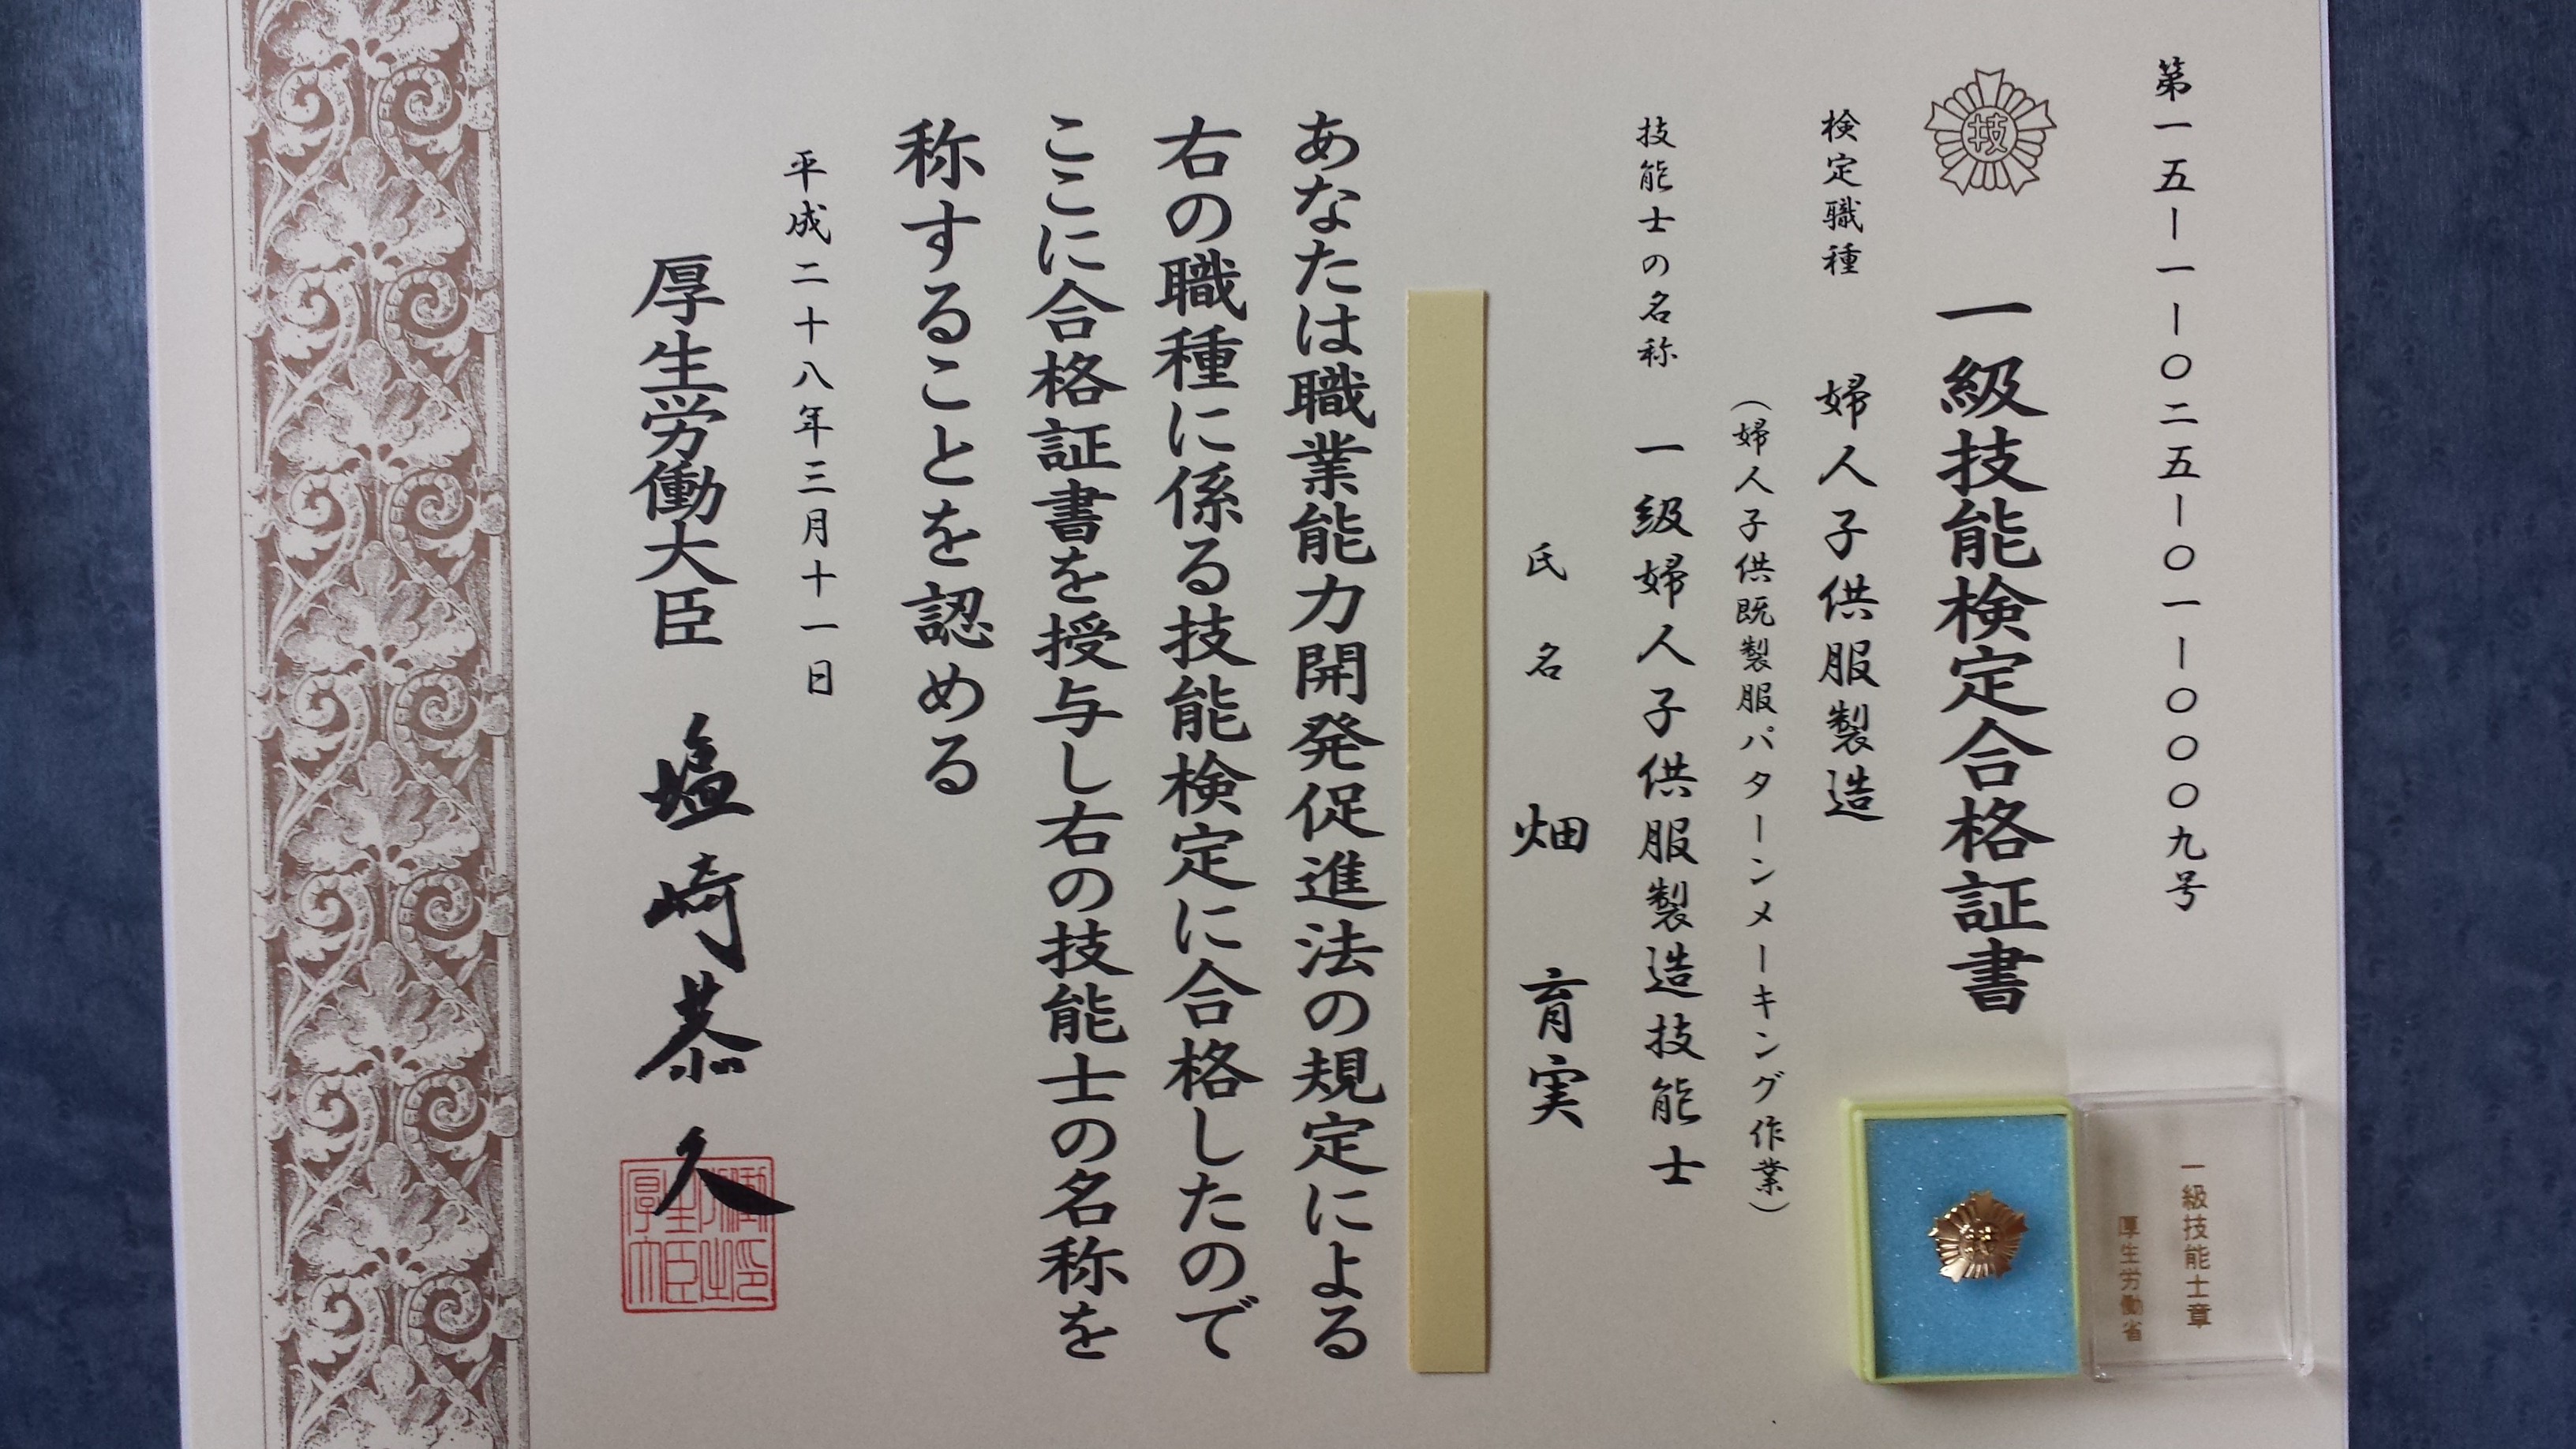 第一五ー一ー〇二五ー〇一ー〇〇〇九号
技
一級技能検定合格証書
検定職種 婦人子供服製造
(婦人子供既製服パターンメーキング作業)
技能士の名称 一級婦人子供服製造技能士
氏名 畑 育実
あなたは職業能力開発促進法の規定による
右の職種に係る技能検定に合格したので
ここに合格証書を授与し右の技能士の名称を
称することを認める
平成二十八年三月十一日
厚生労働大臣 塩崎恭久
一級技能士章
厚生労働省